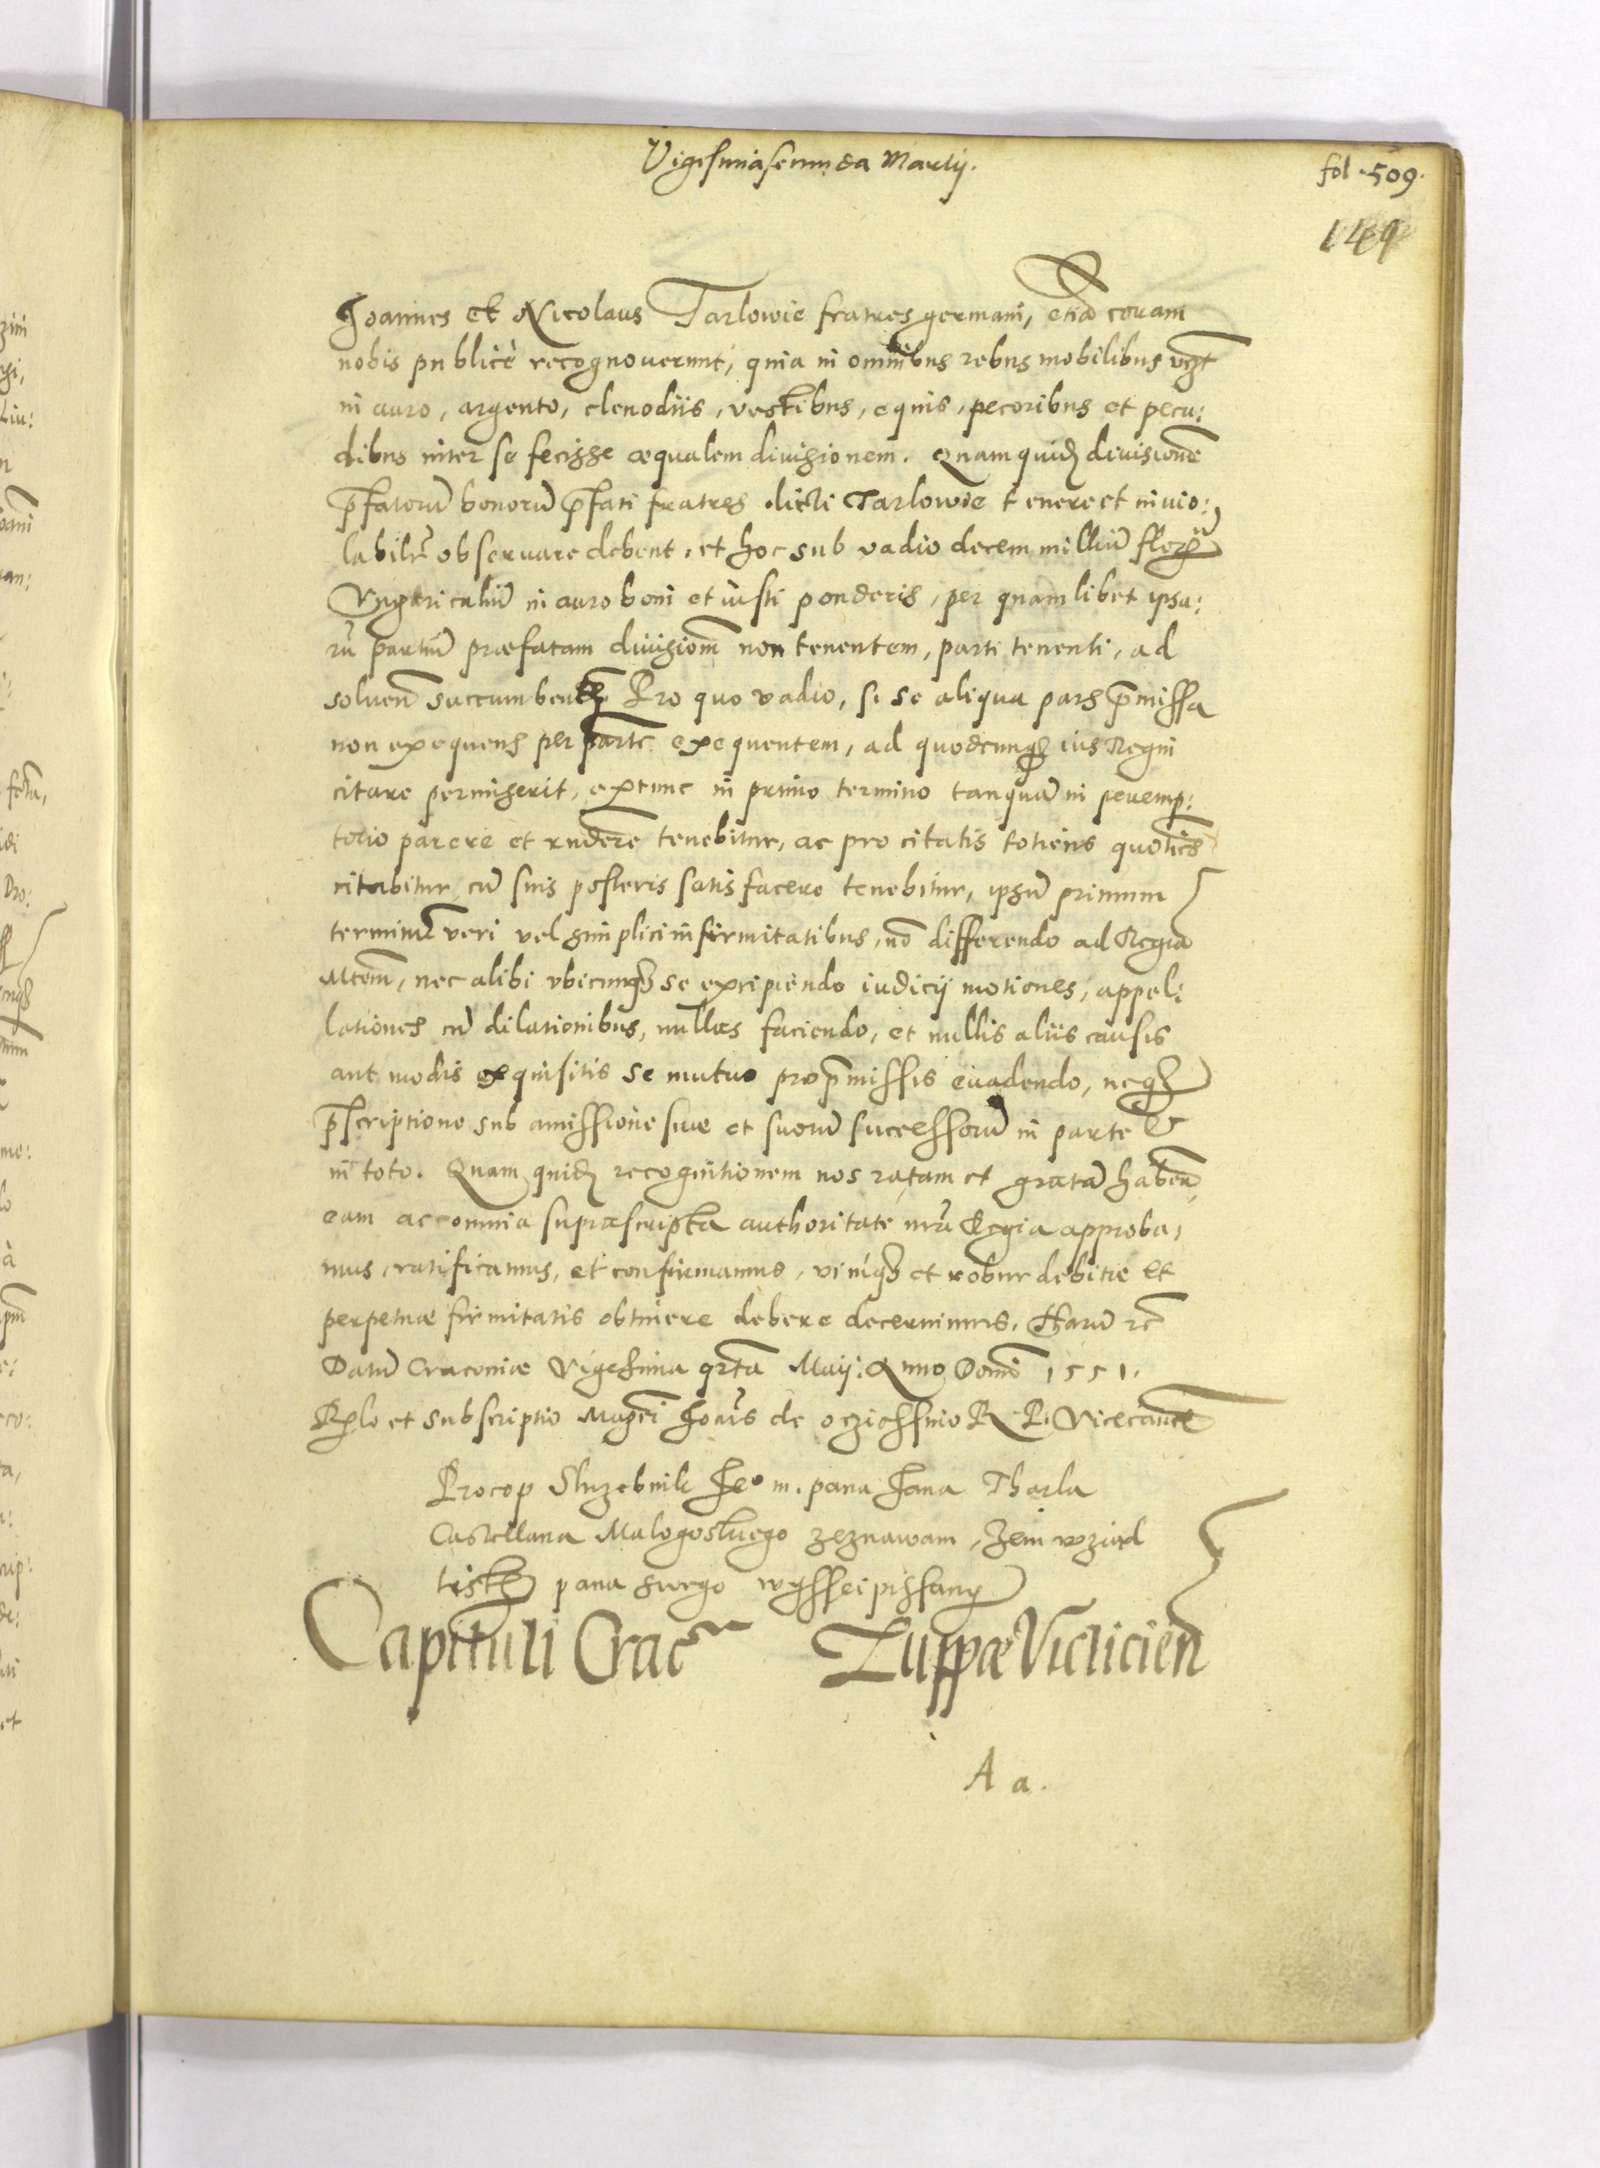 Vigesimasecunda Martij.
fol. 509.
149
Joannes et Nicolaus Tarlowie fratres germani, etiã coram
nobis publicè recognoverunt, quia in omnibus rebus mobilibus vzt
in auro, argento, clenodiis, vestibus, equis, pecoribus et pecu:
dibus inter se fecisse æqualem divisionem. Quam quidẽ divisionẽ
p̃fatorũ bonorũ p̃fati fratres dicti Tarlowie tenere et invio:
labilr̃ observare debent, et hoc sub vadio decem milliũ florẽ
Vngaricaliũ in auro boni et iusti ponderis, per quamlibet ipsa:
rũ partiũ præfatam divisionẽ non tenentem, parti tenenti, ad
soluen̄ succumben̄ Pro quo vadio, si se aliqua pars p̃missa
non exequens per partẽ exequentem, ad quodcunq; ius Regni
citare permiserit, extunc in primo termino tanquã in peremp:
torio parere et rñdere tenebitur, ac pro citatis totiens quotiẽs
citabitur, cũ suis posteris satisfacere tenebitur, ipsũ primum
terminũ veri vel simplici infirmitatibus, nõ differendo ad Regiã
Mtem̃, nec alibi vbicunq; se excipiendo iudicij motiones, appel:
lationes cũ dilationibus, nullas faciendo, et nullis aliis causis
aut modis exquisitis se mutuo pro p̃missis evadendo, neq;
p̃scriptione sub amissione suæ et suorũ successorũ in parte &
in toto. Quam quidẽ recognitionem nos ratam et gratã habẽn
eam ac omnia suprascripta authoritate nrã Regia approba:
mus, ratificamus, et confirmamus, vimq; et robur debitæ et
perpetuæ firmitatis obtinere debere decernimus. Harũ rc̃
Datũ Cracoviæ Vigesima qrta Maij: Anno Domĩ 1551.
Rlo et subscriptio Magci Joañis de oczieschino R. P. Vicecancẽ
Procop Sluzebnik Jeo m. pana Jana Tharla
Castellana Malogoskiego zeznawam, zem wziąl
listy pana swego wyssei pissany
Capituli Crac Zuppæ Vielicien̄
A a.